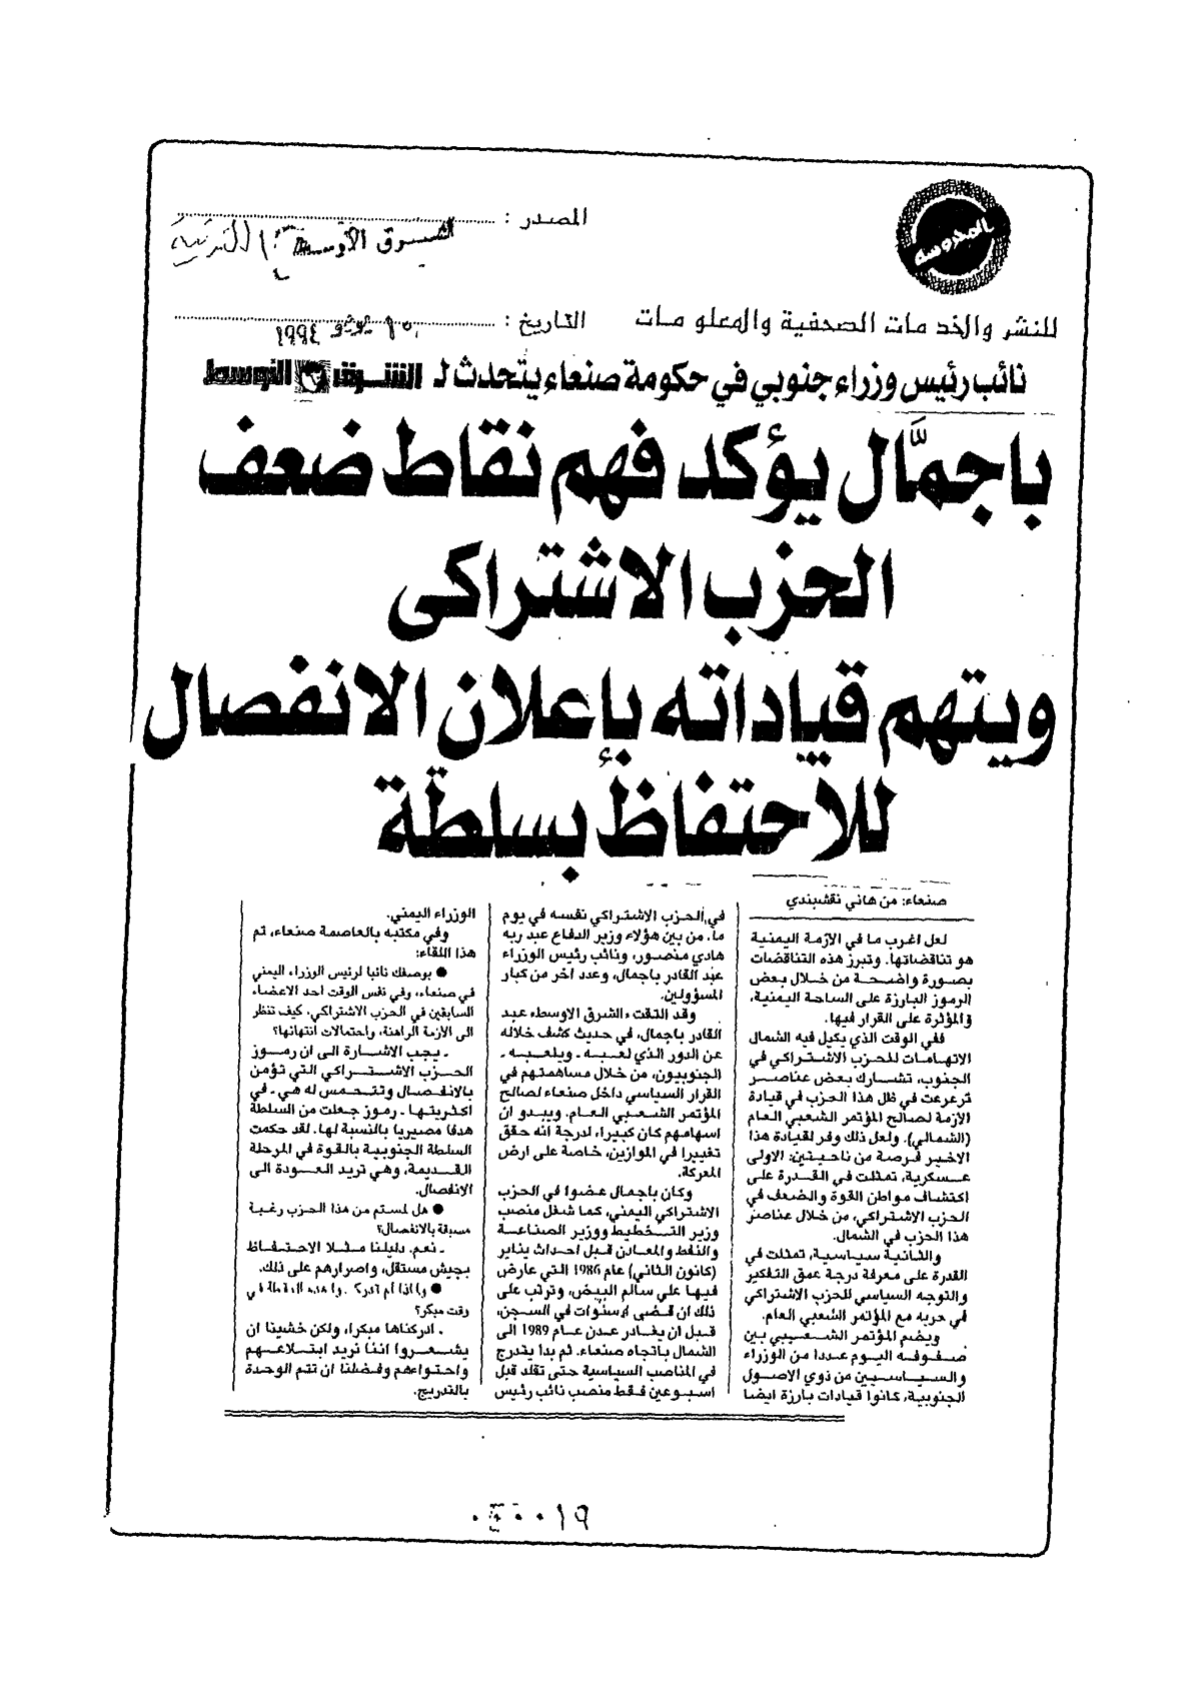 المحروسة
المصدر :
الشرق الأوسط
للنشر والخدمات الصحفية والمعلومات
التاريخ :
١٠ يونيو ١٩٩٤
نائب رئيس وزراء جنوبي في حكومة صنعاء يتحدث لـ الشرق الأوسط
باجمَّال يؤكد فهم نقاط ضعف
الحزب الاشتراكى
ويتهم قياداته بإعلان الانفصال
للاحتفاظ بسلطة
صنعاء: من هاني نقشبندي
لعل اغرب ما في الازمة اليمنية
هو تناقضاتها. وتبرز هذه التناقضات
بصورة واضحة من خلال بعض
الرموز البارزة على الساحة اليمنية،
والمؤثرة على القرار فيها.
ففي الوقت الذي يكيل فيه الشمال
الاتهامات للحزب الاشتراكي في
الجنوب، تشارك بعض عناصر
ترعرعت في ظل هذا الحزب في قيادة
الازمة لصالح المؤتمر الشعبي العام
(الشمالي). ولعل ذلك وفر لقيادة هذا
الاخير فرصة من ناحيتين: الاولى
عسكرية، تمثلت في القدرة على
اكتشاف مواطن القوة والضعف في
الحزب الاشتراكي، من خلال عناصر
هذا الحزب في الشمال.
والثانية سياسية، تمثلت في
القدرة على معرفة درجة عمق التفكير
والتوجه السياسي للحزب الاشتراكي
في حربه مع المؤتمر الشعبي العام.
ويضم المؤتمر الشعبي بين
صفوفه اليوم عددا من الوزراء
والسياسيين من ذوي الاصول
الجنوبية، كانوا قيادات بارزة ايضا
في الحزب الاشتراكي نفسه في يوم
ما. من بين هؤلاء وزير الدفاع عبد ربه
هادي منصور، ونائب رئيس الوزراء
عبد القادر باجمال، وعدد اخر من كبار
المسؤولين.
وقد التقت «الشرق الاوسط» عبد
القادر باجمال، في حديث كشف خلاله
عن الدور الذي لعبه ـ ويلعبه ـ
الجنوبيون، من خلال مساهمتهم في
القرار السياسي داخل صنعاء لصالح
المؤتمر الشعبي العام. ويبدو ان
اسهامهم كان كبيرا، لدرجة انه حقق
تغييرا في الموازين، خاصة على ارض
المعركة.
وكان باجمال عضوا في الحزب
الاشتراكي اليمني، كما شغل منصب
وزير التخطيط ووزير الصناعة
والنفط والمعادن قبل احداث يناير
(كانون الثاني) عام 1986 التي عارض
فيها علي سالم البيض، وترتب على
ذلك ان قضى سنوات في السجن،
قبل ان يغادر عدن عام 1989 الى
الشمال باتجاه صنعاء. ثم بدا يتدرج
في المناصب السياسية حتى تقلد قبل
اسبوعين فقط منصب نائب رئيس
الوزراء اليمني.
وفي مكتبه بالعاصمة صنعاء، تم
هذا اللقاء:
● بوصفك نائبا لرئيس الوزراء اليمني
في صنعاء، وفي نفس الوقت احد الاعضاء
السابقين في الحزب الاشتراكي، كيف تنظر
الى الازمة الراهنة، واحتمالات انتهائها؟
ـ يجب الاشارة الى ان رموز
الحزب الاشتراكي التي تؤمن
بالانفصال وتتحمس له هي ـ في
اكثريتها ـ رموز جعلت من السلطة
هدفا مصيريا بالنسبة لها. لقد حكمت
السلطة الجنوبية بالقوة في المرحلة
القديمة، وهي تريد العودة الى
الانفصال.
● هل لمستم من هذا الحزب رغبة
مسبقة بالانفصال؟
ـ نعم. دليلنا مثلا الاحتفاظ
بجيش مستقل، واصرارهم على ذلك.
● ولماذا لم تدركوا هذه النقطة في
وقت مبكر؟
ـ ادركناها مبكرا، ولكن خشينا ان
يشعروا اننا نريد ابتلاعهم
واحتواءهم وفضلنا ان تتم الوحدة
بالتدريج.